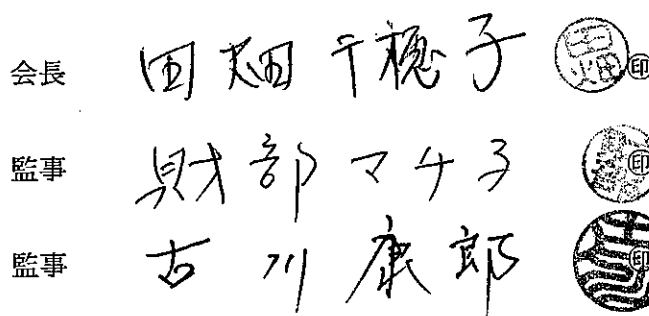 会長 田畑千穂子 印
監事 財部マチ子 印
監事 古川康郎 印